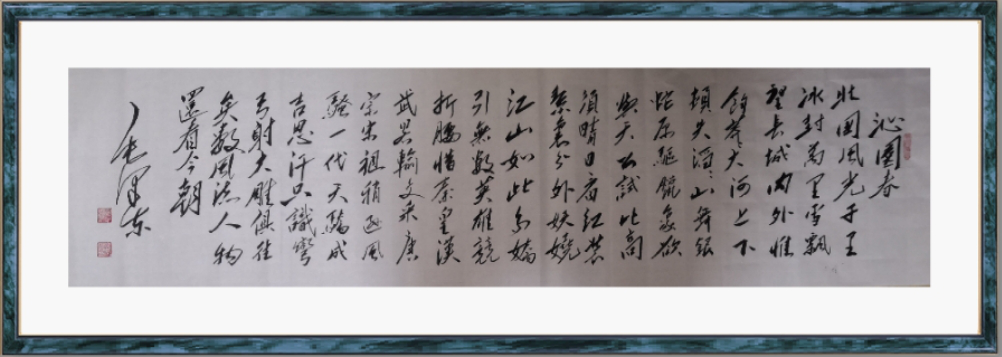 沁園春
北国風光千里
冰封萬里雪飄
望長城内外惟
餘莽大河上下
頓失滔滔山舞銀
蛇原驅蠟象欲
與天公試比高
須晴日看紅裝
素裹分外妖嬈
江山如此多嬌
引無數英雄競
折腰惜秦皇漢
武略輸文采唐
宗宋祖稍遜風
騷一代天驕成
吉思汗只識彎
弓射大雕俱往
矣數風流人物
還看今朝
毛澤東